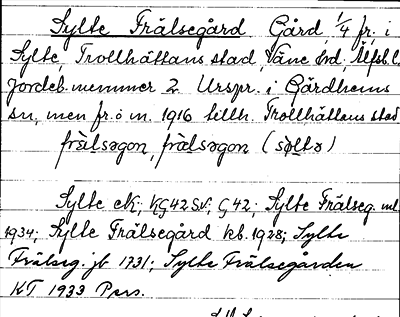 Sylte Frälsegård Gård 1/4 fr. i
Sylte, Trollhättans stad, Väne hd, Älfsb. l.
Jordeb. nummer 2. Urspr. i Gärdhems
sn, men fr. o m. 1916 tillh. Trollhättans stad
frälsegon, frälsegon (sylte)
Sylte eK; KG42SV; G42; Sylte Frälseg. ml
1934; Sylte Frälsegård kb. 1928; Sylte
Frälseg. jb 1731; Sylte Frälsegården
KT 1933 Pers.